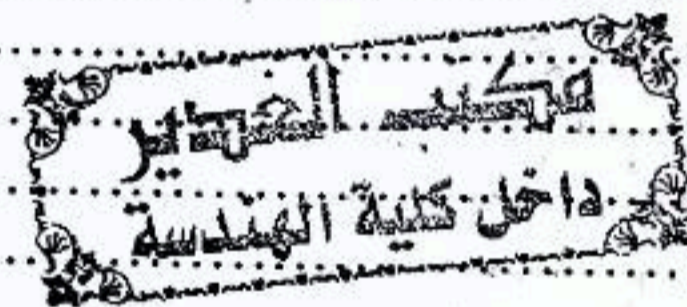 مكتب الخبير
داخل كلية الهندسة